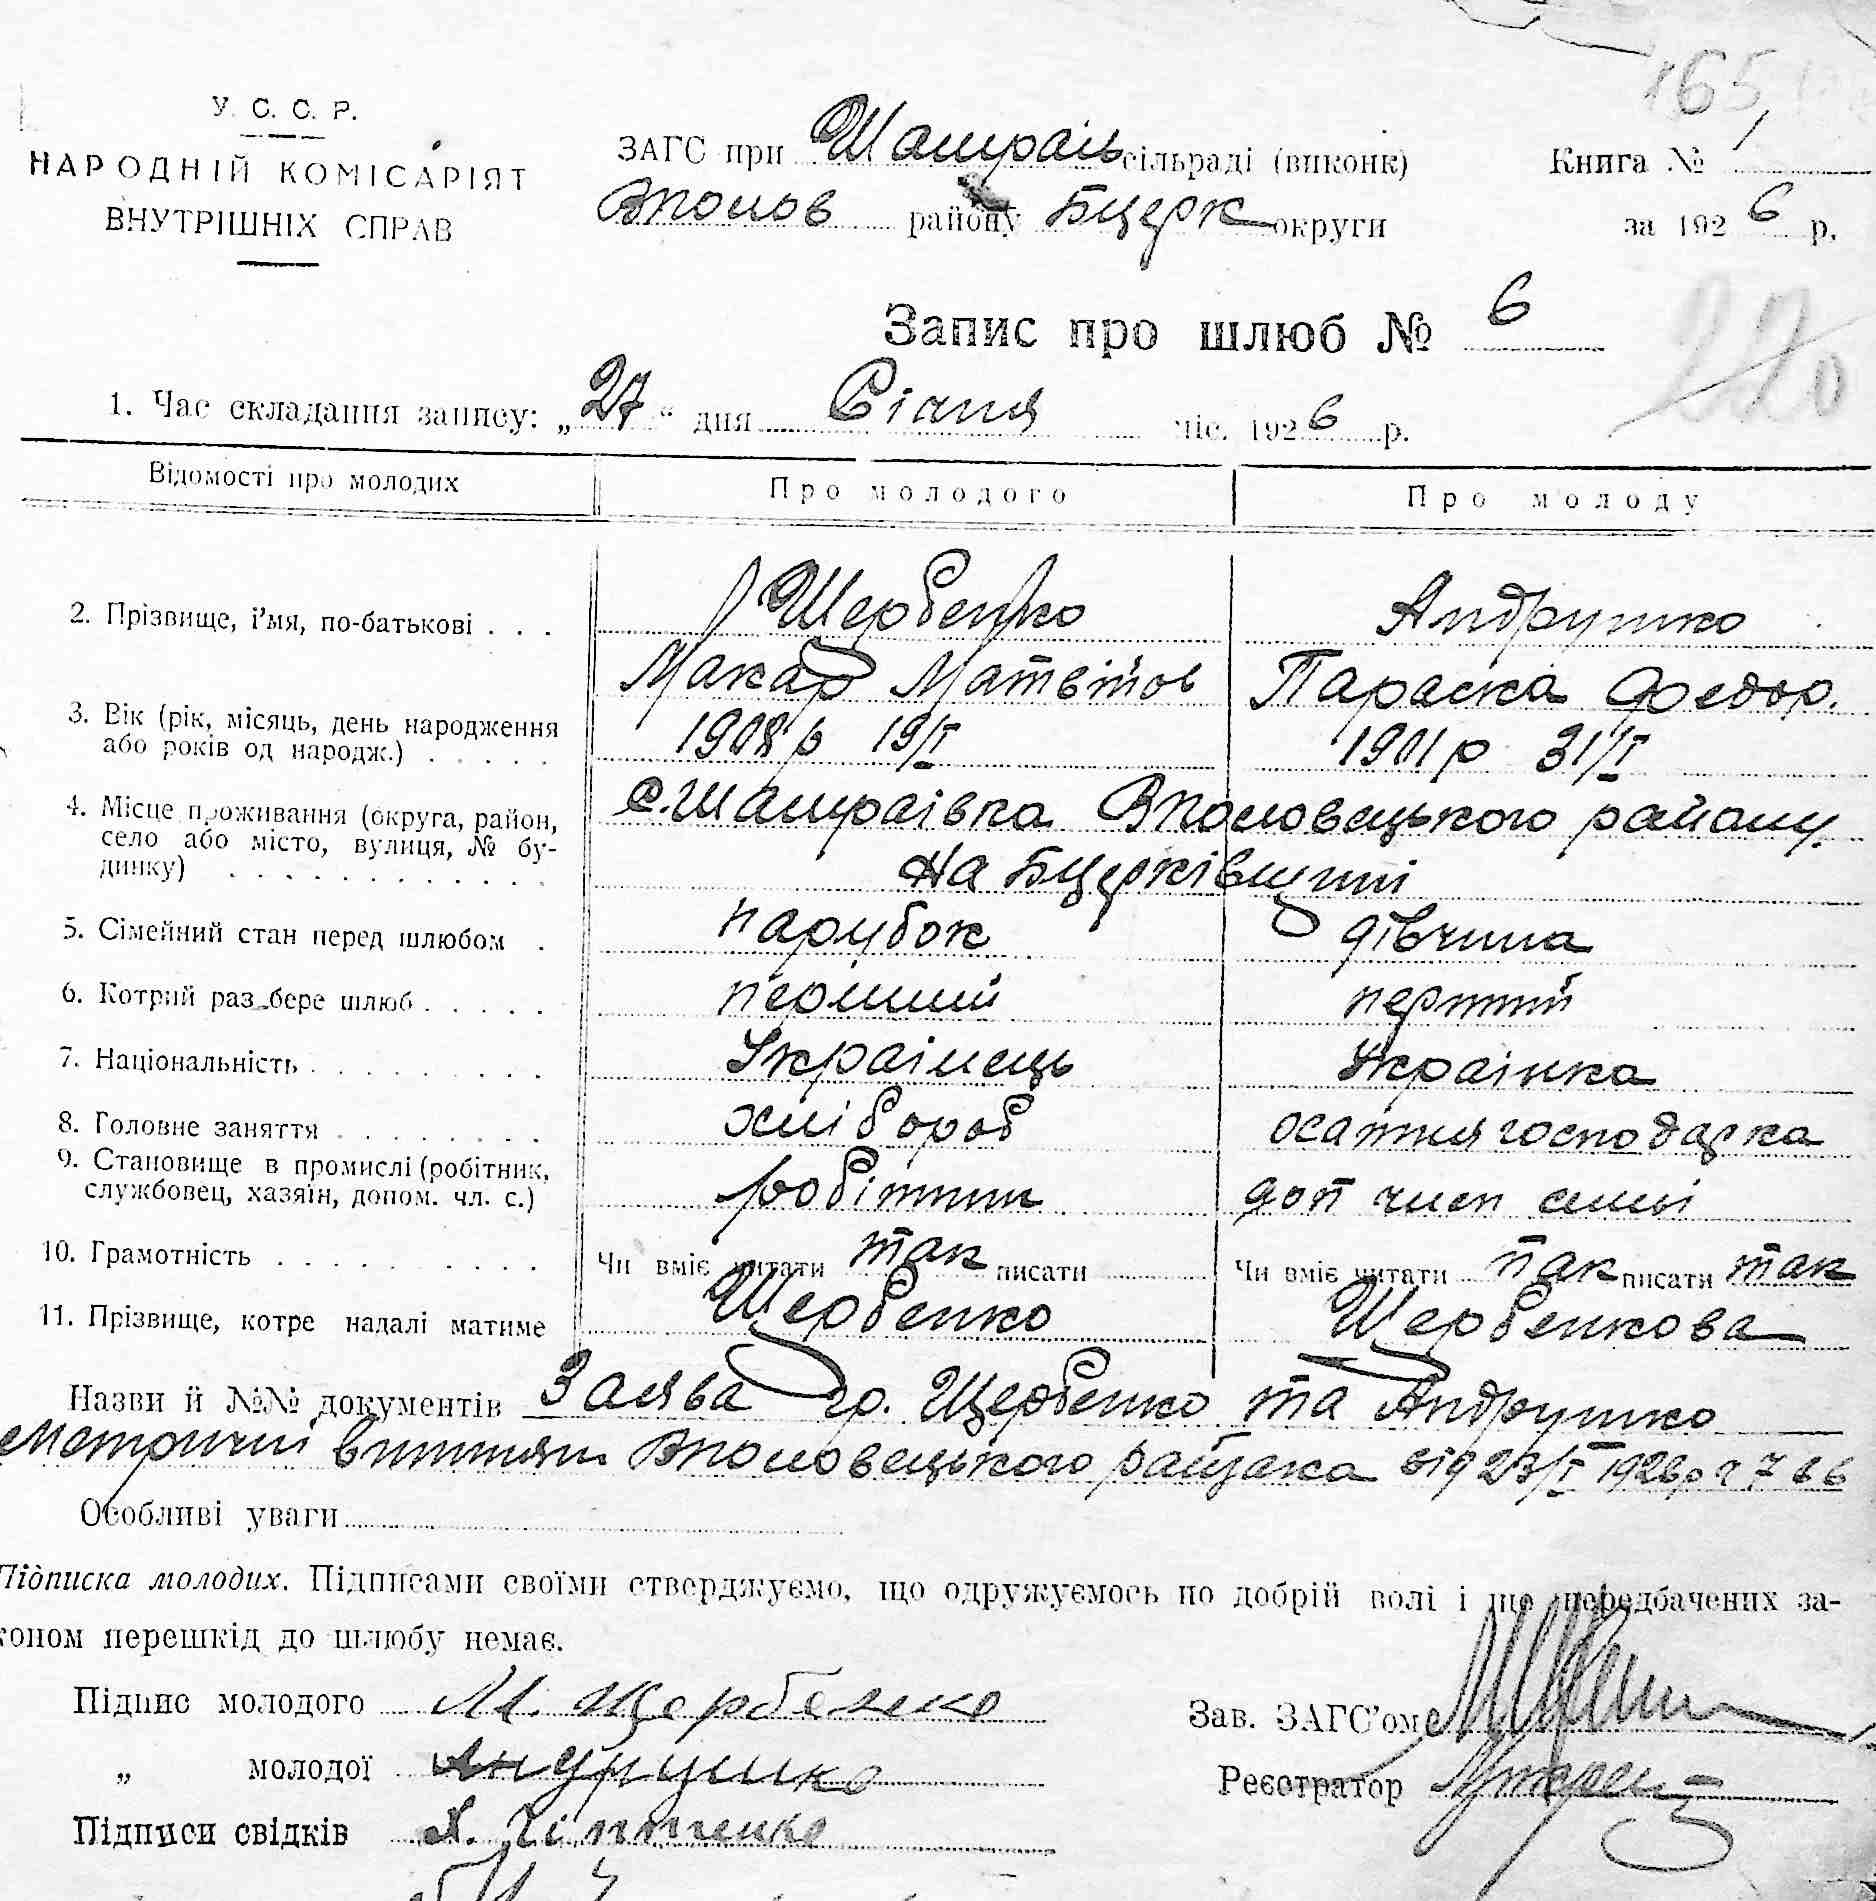 165
У. С. С. Р.
НАРОДНІЙ КОМІСАРІЯТ
ВНУТРІШНІХ СПРАВ
ЗАГС при Шамраїв сільраді (виконк)
Книга №
Вполов району Бцерк округи
за 1926 р.
Запис про шлюб № 6
220
1. Час складання запису: „27“ дня Січня міс. 1926 р.
Відомості про молодих
Про молодого
Про молоду
2. Прізвище, і'мя, по-батькові . . .
Щербенко
Макар Матвійов
Андрушко
Параска Федор.
3. Вік (рік, місяць, день народження
або років од народж.) . . . . .
1908 р 19/I
1901 р 31/I
4. Місце проживання (округа, район,
село або місто, вулиця, № бу-
динку) . . . . . . . . . . .
с. Шамраївка Вполовецького району
на Бцерківщині
5. Сімейний стан перед шлюбом .
парубок
дівчина
6. Котрий раз бере шлюб . . . . .
перший
перший
7. Національність . . . . . . . . .
Українець
Українка
8. Головне заняття . . . . . . . .
хлібороб
господарка
9. Становище в промислі (робітник,
службовец, хазяїн, допом. чл. с.)
робітник
доп член семьі
10. Грамотність . . . . . . . . . .
Чи вміє читати так писати
Чи вміє читати так писати так
11. Прізвище, котре надалі матиме
Щербенко
Щербенкова
Назви й №№ документів Заява гр. Щербенко та Андрушко
Метричні витяги Вполовецького райзагса від 23/I 1926 р
Особливі уваги
Підписка молодих. Підписами своїми стверджуємо, що одружуємось по добрій волі і що передбачених за-
коном перешкід до шлюбу немає.
Підпис молодого М. Щербенко
Зав. ЗАГС'ом
„ молодої Андрушко
Реєстратор
Підписи свідків